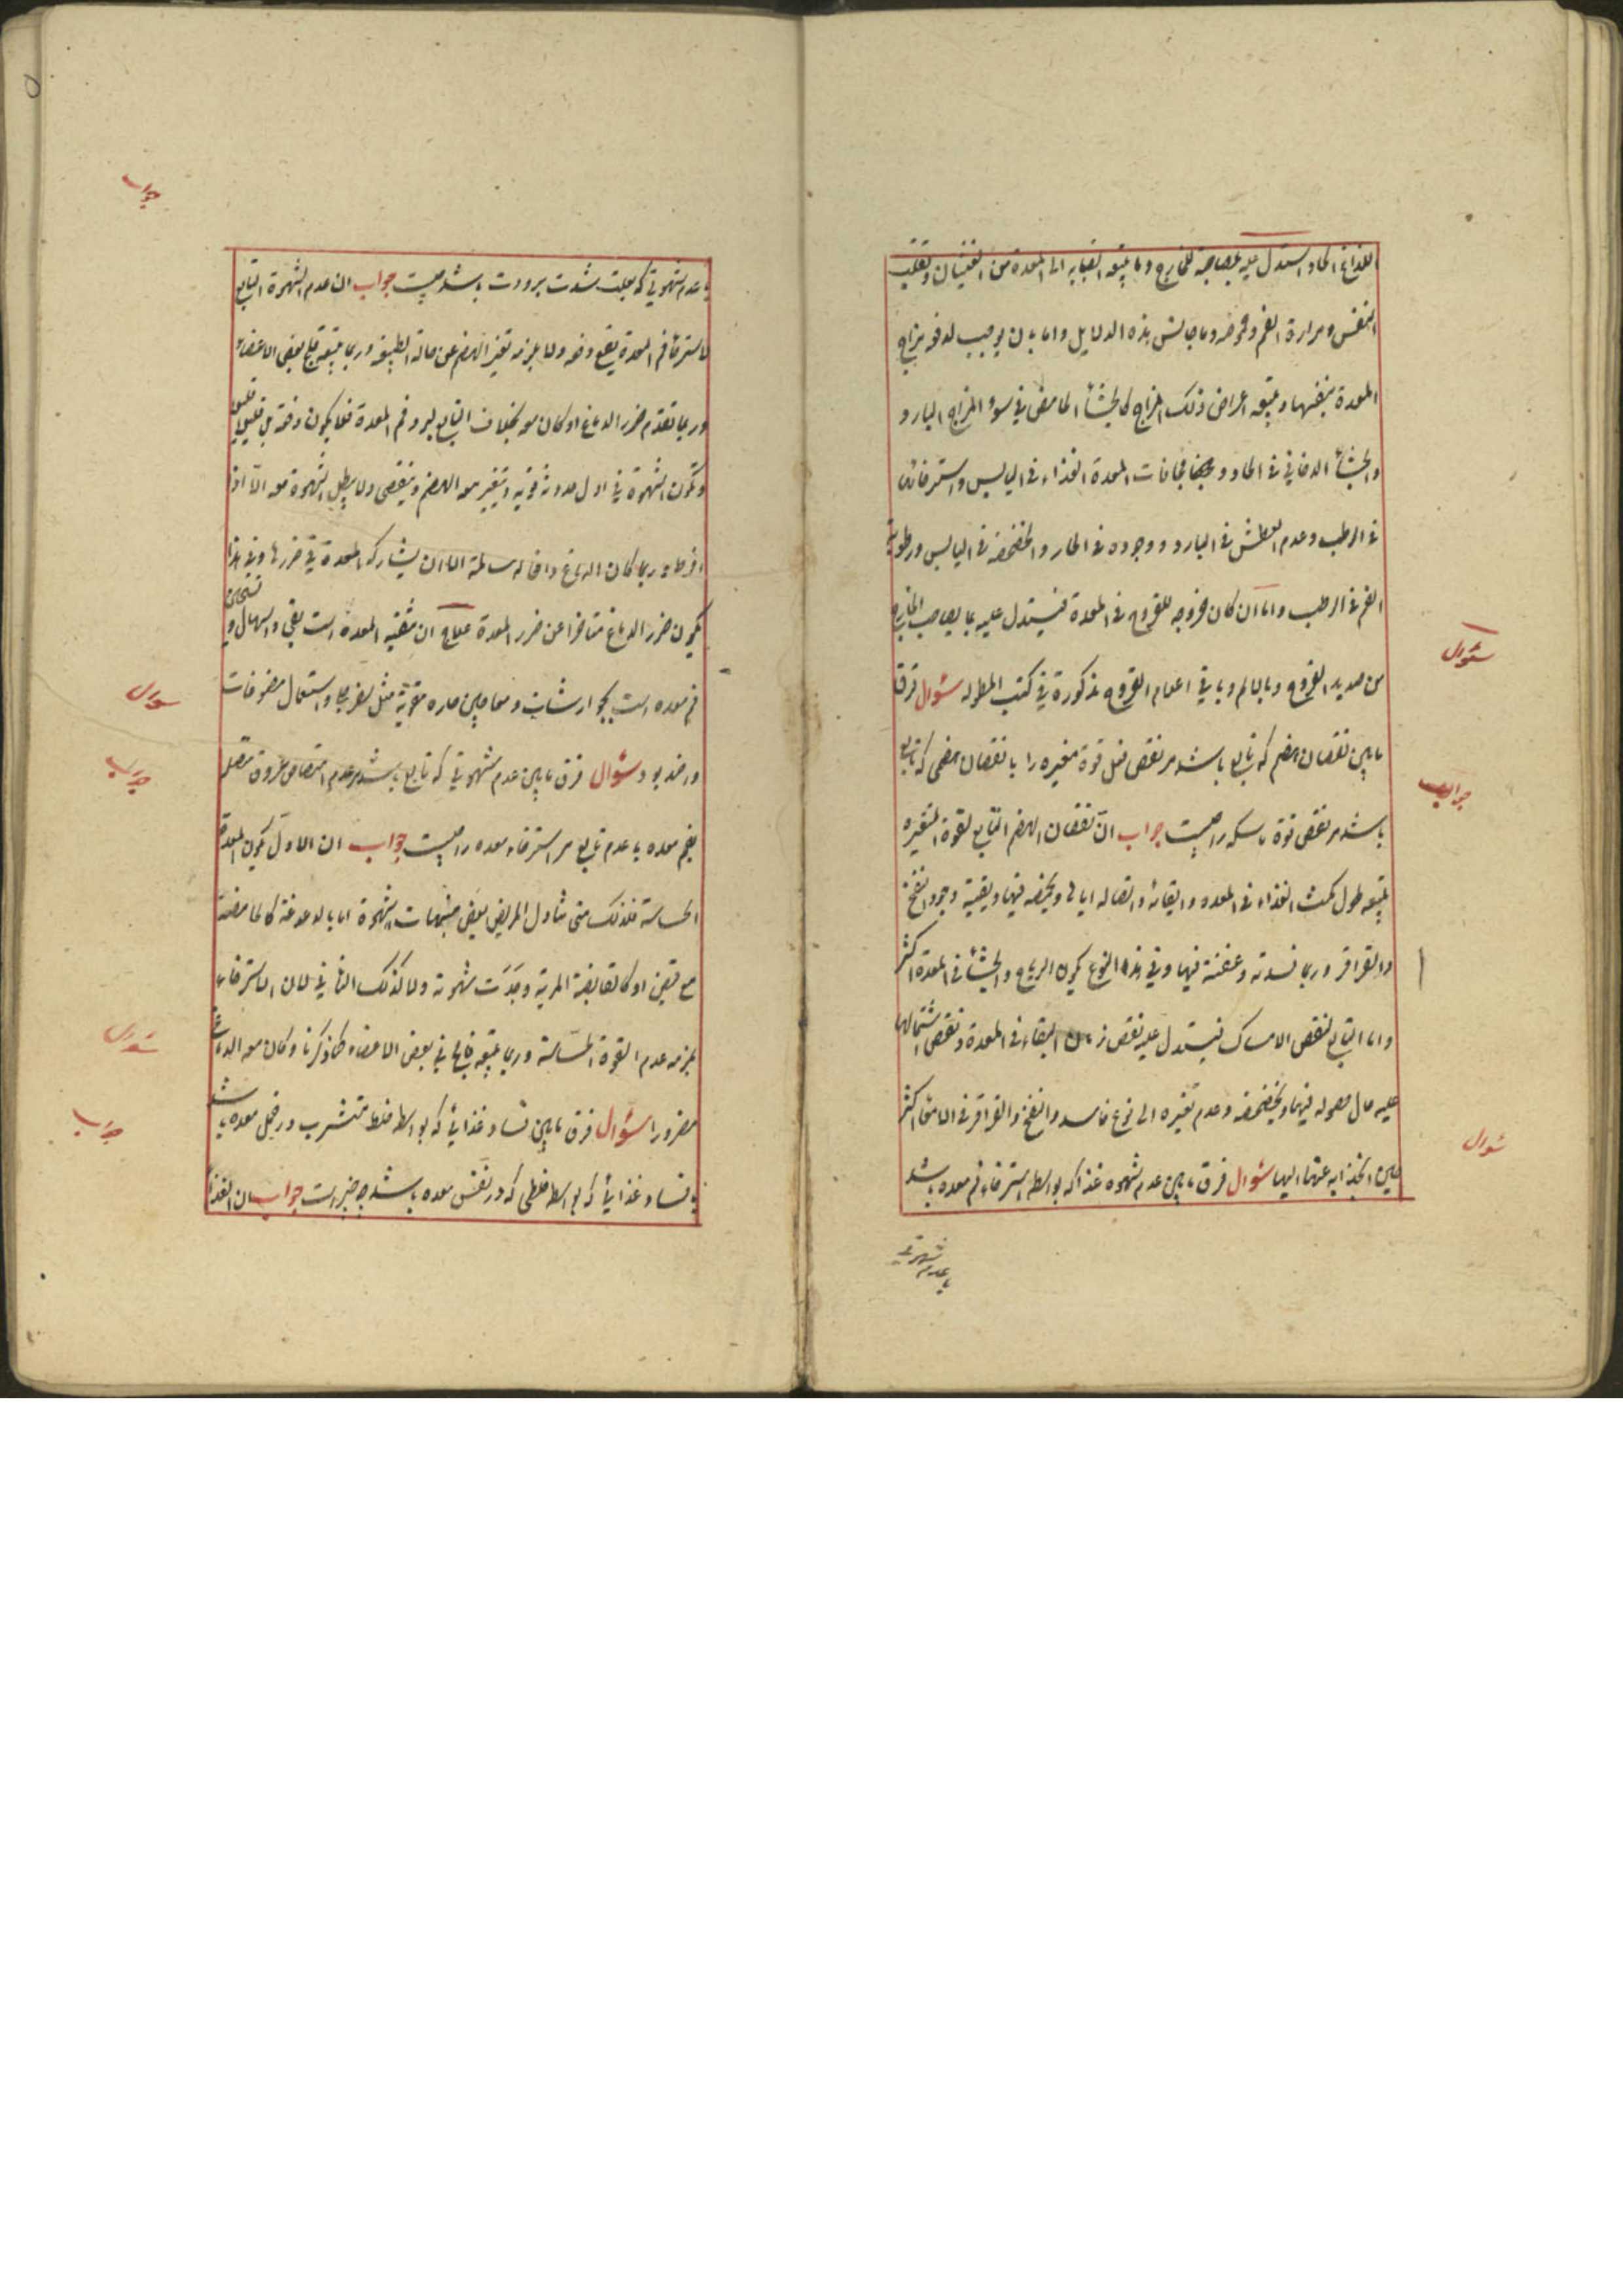 اللذاع الحاد استدل عليه بمصاحبة للخارج وما يتبعه انصبابه الى المعدة من الغثيان وتقلب
النفس ومرارة الفم وحموضه وما جانس هذه الدلايل واما بان يوجب لدفه مزاج
المعدة بنفسها ويتبعه اعراض ذلك المزاج كالجشأ الحامض في سوء المزاج البارد و
والجشأ الدخاني في الحار و مجافات المعدة الغذاء في اليابس واسترخائها
في الرطب وعدم العطش في البارد ووجوده في الحار والخضخضه في اليابس ورطوبة
الفم في الرطب واما ان كان خروجه للقروح في المعدة فيستدل عليه بما يصاحب الخارج
من صديد القروح وبالالم وباقي اعلام القروح مذكورة في كتب المطوله سؤال فرق
مابين نقصان هضم كه تابع باشد مر نقص فعل قوة مغيره را با نقصان هضمى كه تابع
باشد مر نقص قوة ماسكه را چيست جواب ان نقصان الهضم التابع لقوة المغيره
يتبعه طول مكث الغذاء في المعده وابقائه واتصاله اياها ويخصه فيها وبقيته وجود النفخ
والقراقر وربما فسدته وعفنته فيها وفي هذا النوع يكون الرياح والجشأ في المعدة اكثر
واما التابع لنقص الامساك فيستدل عليه نقص زمان البقاء في المعدة ونقص اشتمالها
عليه حال حصوله فيها وبخضخضه وعدم تغيره الى نوع فاسد والنفخ والقراقر في الامعاء اكثر
حين انجذابه عنها اليها سؤال فرق مابين عدم شهوه غذا كه بواسطه استرخاء فم معده باشد
با عدم شهوتى
سؤال
جواب
سؤال
با عدم شهوتى كه بعلت شدت برودت باشد چيست جواب ان عدم الشهوة التابع
لاسترخاء فم المعدة يقع دفعه ولا يلزمه تغير الهضم عن حالة الطبيعة وربما يتبعه فلج بعض الاعضاء
وربما تقدم ضرر الدماغ او كان معه بخلاف التابع لبرد فم المعدة فلا يكون دفعة بل قليلا قليلا
وتكون الشهوة في اول حدوثه قويه ويتغير معه الهضم وينقص ولا يبطل الشهوة معه الا اذا
افرط وربما كان الدماغ وافعاله سالمة الا ان يشارك المعدة في ضررها وفي هذا
يكون ضرر الدماغ متاخرا عن ضرر المعدة علاج ان تنقيه المعدة است بقى واسهال و تسخين
فم معده است بجوارشات ومعاجين حاره مقوية مثل سفرجلى واستعمال مضوغات
ورضد بود سؤال فرق مابين عدم شهوتى كه تابع باشد مر عدم امتصاص عروق متصل
بفم معده با عدم تابع مر استرخاء معده را چيست جواب ان الاول يكون المعدة
الحساسة فلذلك متى تناول المريض بعض منبهات الشهوة اما بالدغدغة كالحامضة
مع قبض او كالقابضة المرية وجدت شهوته ولا كذلك الثاني لان الاسترخاء
يلزمه عدم القوة الحساسة وربما يتبعه فالج في بعض الاعضاء كما ذكرنا وكان معه الدماغ
مضرورا سؤال فرق مابين فساد غذايى كه بواسطه خلط متشرب در خمل معده باشد
با فساد غذايى كه بواسطه خلطى كه در نفس معده باشد چه خبر است جواب ان الغذا
جواب
سؤال
جواب
سؤال
جواب